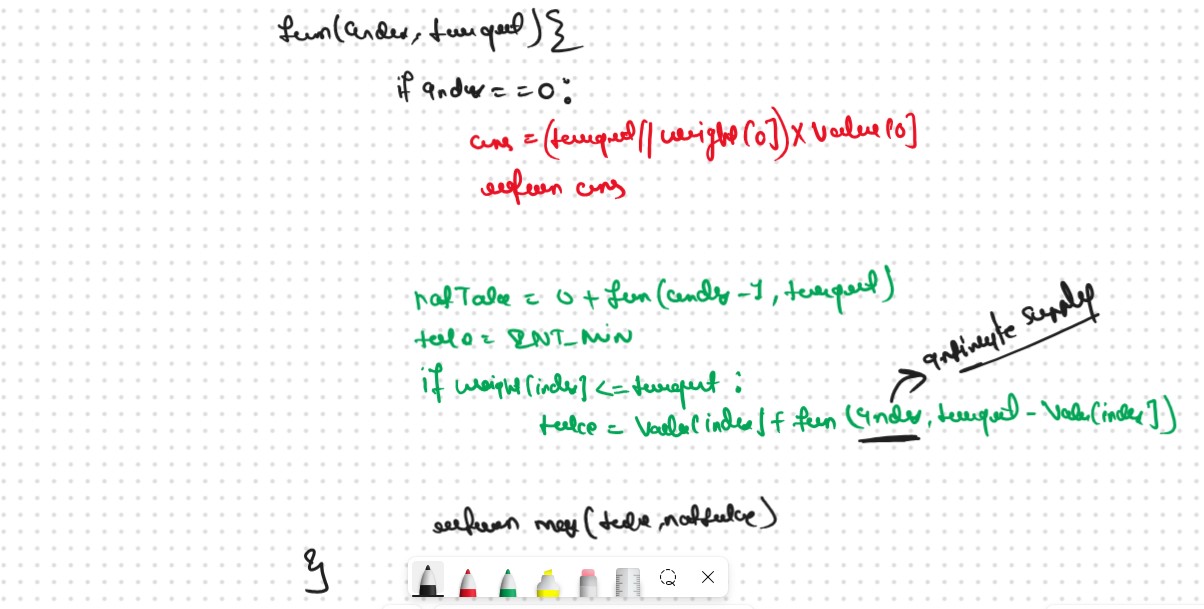 fun(index, target){
if index==0:
ans = (target//weight[0])×value[0]
return ans
notTake = 0+fun(index-1, target)
infinite supply
take = INT_MIN
if weight[index] <= target :
take = value[index] + fun (index, target - value[index])
return max(take, nottake)
}